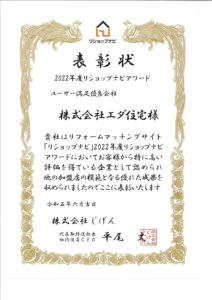 リショップナビ
表彰状
2022年度リショップナビアワード
ユーザー満足優良会社
株式会社エダ住宅様
貴社はリフォームマッチングサイト
「リショップナビ」2022年度リショップナビ
アワードにおいてお客様から特に高い
評価を得ている企業として認められ
他の加盟店の模範となる優れた成果を
収められましたのでここに表彰いたします
令和五年六月吉日
株式会社じげん
代表取締役社長
執行役員CEO
平尾 丈